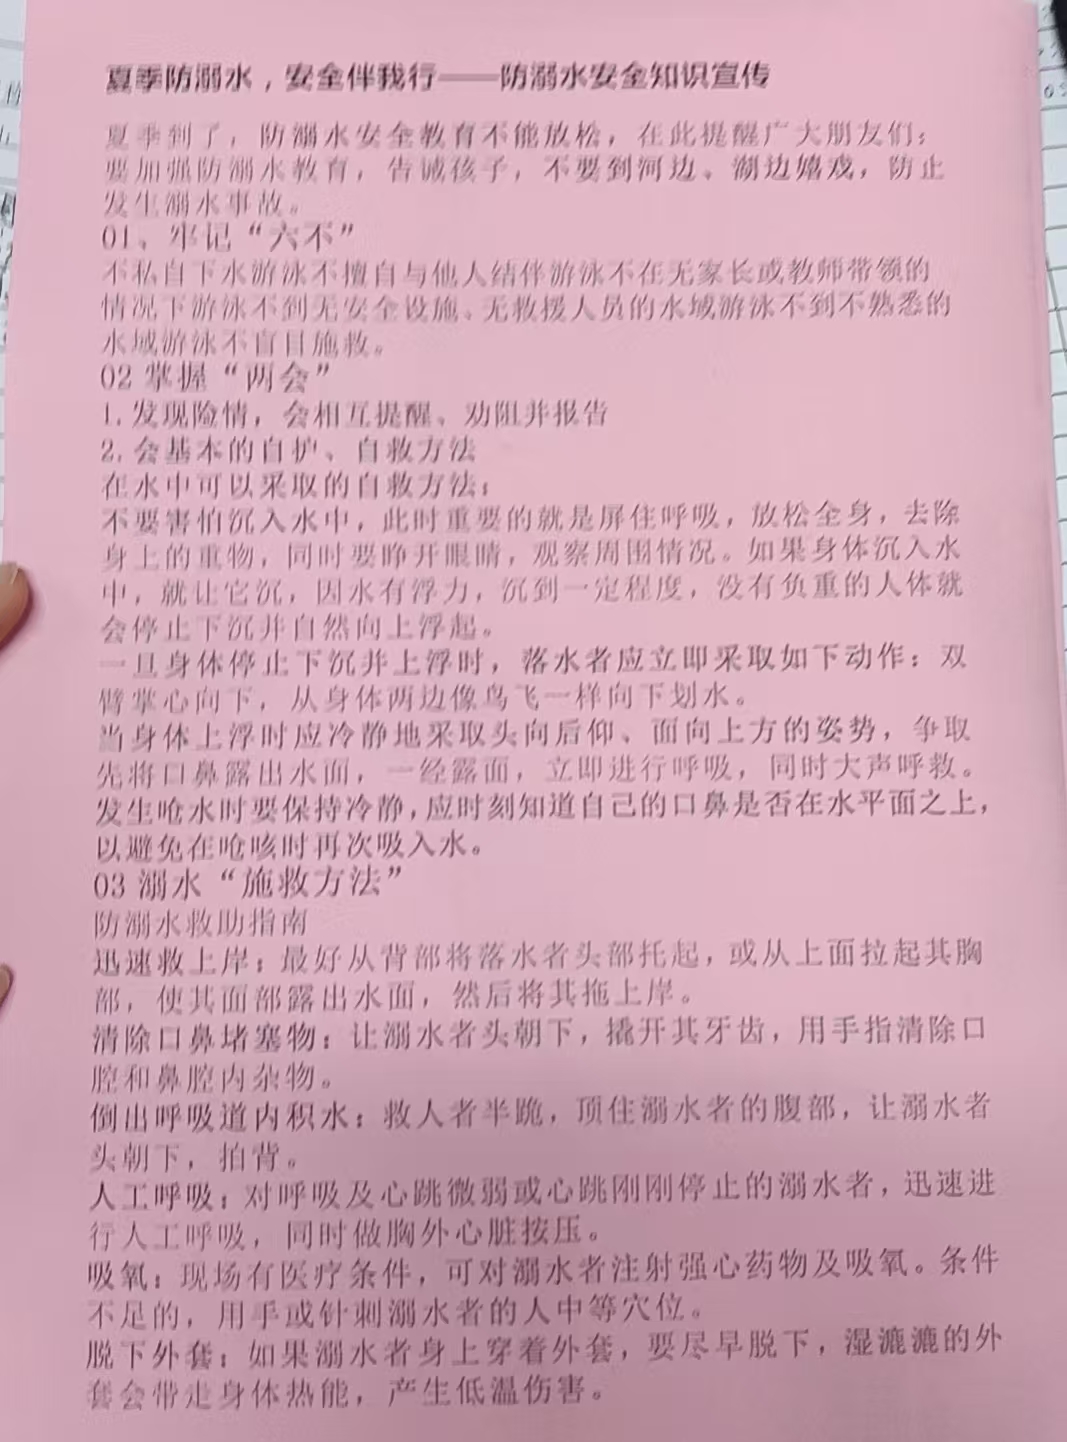 夏季防溺水，安全伴我行——防溺水安全知识宣传
夏季到了，防溺水安全教育不能放松，在此提醒广大朋友们：
要加强防溺水教育，告诫孩子，不要到河边、湖边嬉戏，防止
发生溺水事故。
01、牢记“六不”
不私自下水游泳不擅自与他人结伴游泳不在无家长或教师带领的
情况下游泳不到无安全设施、无救援人员的水域游泳不到不熟悉的
水域游泳不盲目施救。
02 掌握“两会”
1.发现险情，会相互提醒、劝阻并报告
2.会基本的自护、自救方法
在水中可以采取的自救方法：
不要害怕沉入水中，此时重要的就是屏住呼吸，放松全身，去除
身上的重物，同时要睁开眼睛，观察周围情况。如果身体沉入水
中，就让它沉，因水有浮力，沉到一定程度，没有负重的人体就
会停止下沉并自然向上浮起。
一旦身体停止下沉并上浮时，落水者应立即采取如下动作：双
臂掌心向下，从身体两边像鸟飞一样向下划水。
当身体上浮时应冷静地采取头向后仰、面向上方的姿势，争取
先将口鼻露出水面，一经露面，立即进行呼吸，同时大声呼救。
发生呛水时要保持冷静，应时刻知道自己的口鼻是否在水平面之上，
以避免在呛咳时再次吸入水。
03 溺水“施救方法”
防溺水救助指南
迅速救上岸：最好从背部将落水者头部托起，或从上面拉起其胸
部，使其面部露出水面，然后将其拖上岸。
清除口鼻堵塞物：让溺水者头朝下，撬开其牙齿，用手指清除口
腔和鼻腔内杂物。
倒出呼吸道内积水：救人者半跪，顶住溺水者的腹部，让溺水者
头朝下，拍背。
人工呼吸：对呼吸及心跳微弱或心跳刚刚停止的溺水者，迅速进
行人工呼吸，同时做胸外心脏按压。
吸氧：现场有医疗条件，可对溺水者注射强心药物及吸氧。条件
不足的，用手或针刺溺水者的人中等穴位。
脱下外套：如果溺水者身上穿着外套，要尽早脱下，湿漉漉的外
套会带走身体热能，产生低温伤害。